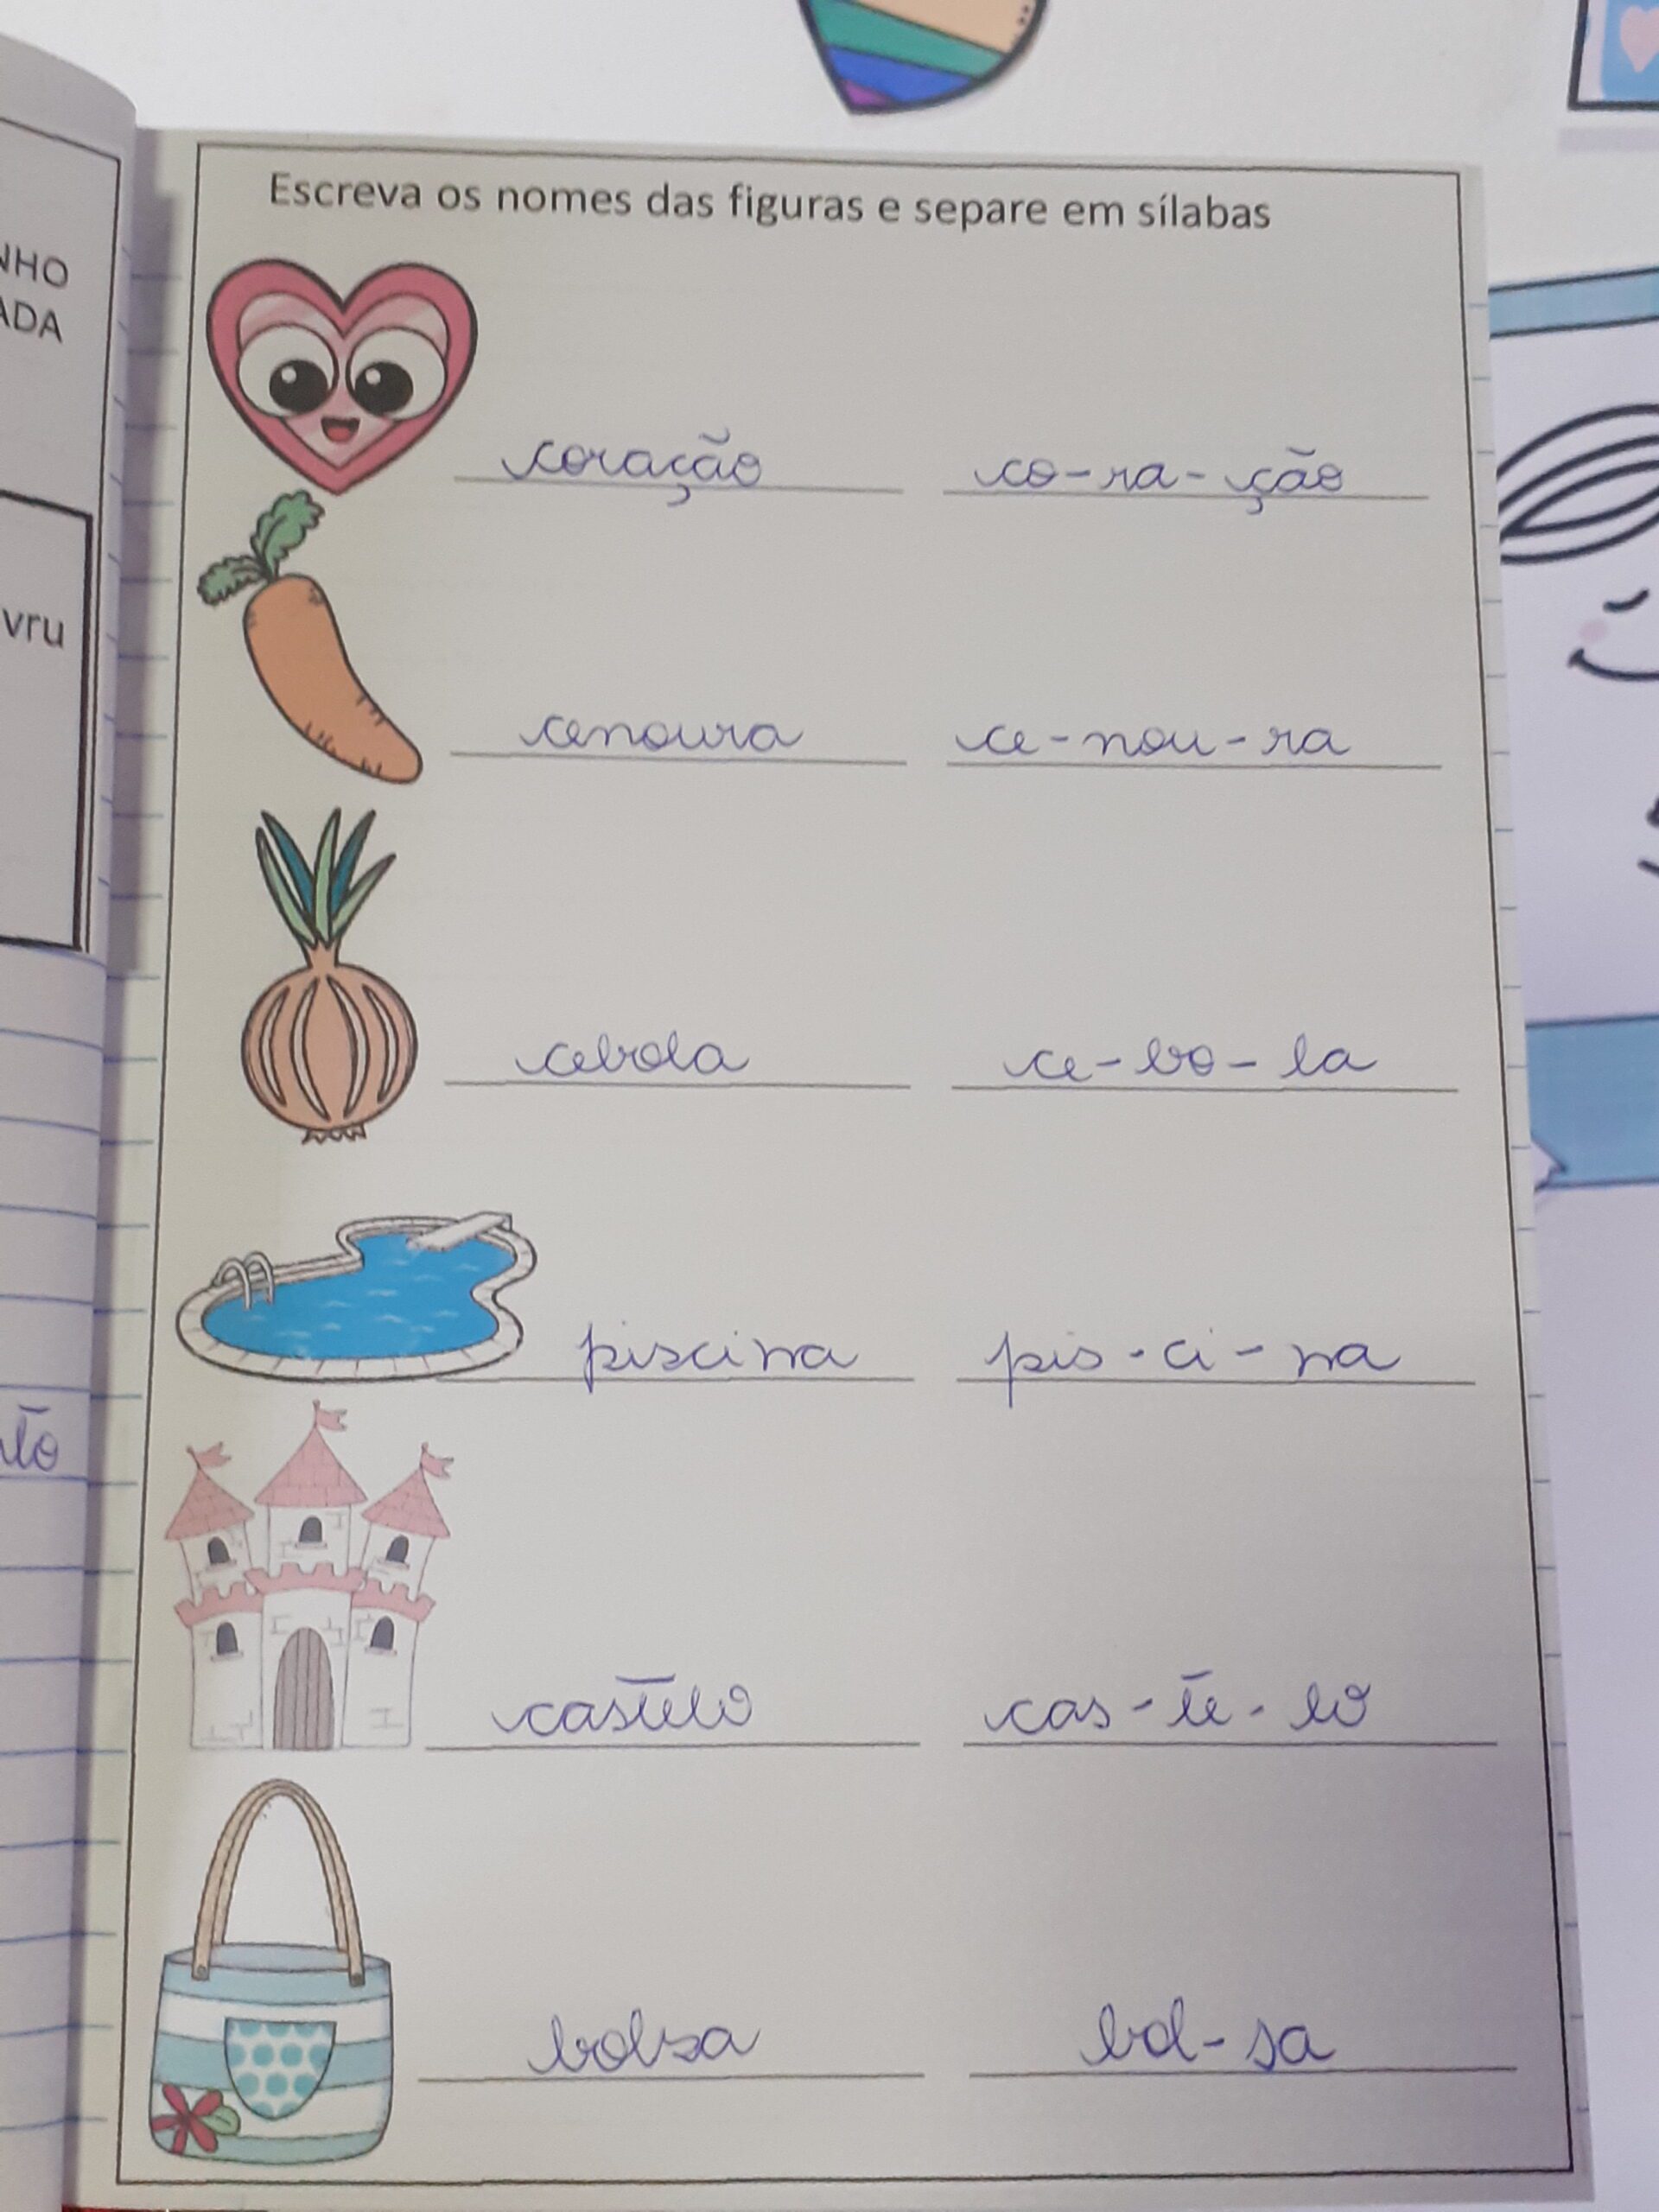 NHO
ADA
vru
to
Escreva os nomes das figuras e separe em sílabas
coração co-ra-ção
cenoura ce-nou-ra
cebola ce-bo-la
piscina pis-ci-na
castelo cas-te-lo
bolsa bol-sa